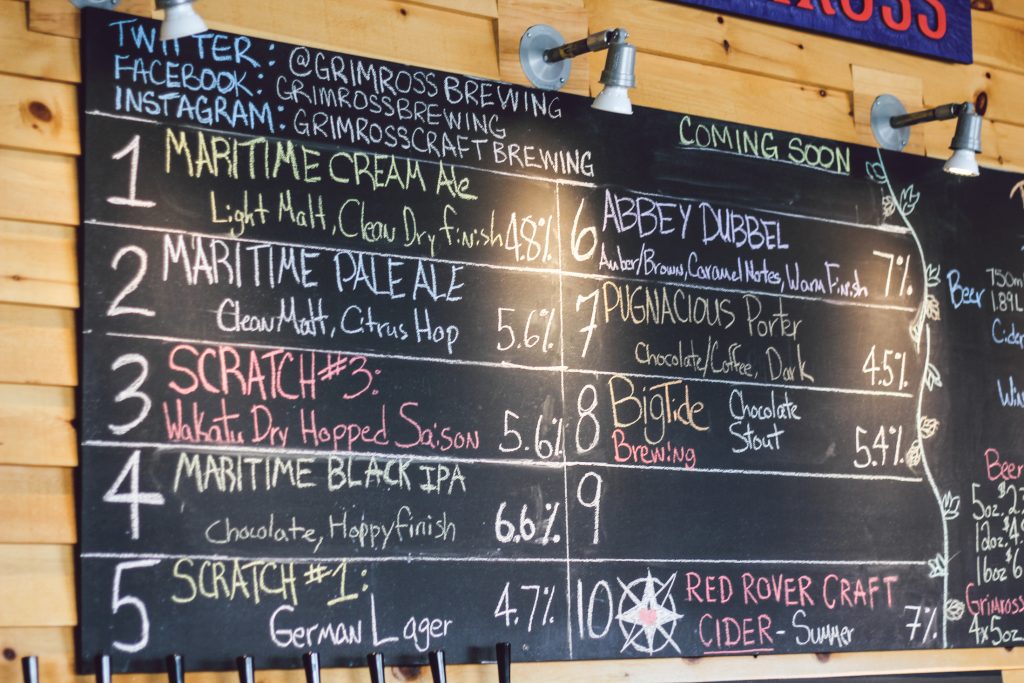 TWITTER: @GRIMROSSBREWING
FACEBOOK: GRIMROSSBREWING
INSTAGRAM: GRIMROSSCRAFTBREWING
1 MARITIME CREAM Ale
Light Malt, Clean Dry finish 4.8%
2 MARITIME PALE ALE
Clean Malt, Citrus Hop 5.6%
3 SCRATCH #3:
Wakatu Dry Hopped Saison 5.6%
4 MARITIME BLACK IPA
Chocolate, Hoppy finish 6.6%
5 SCRATCH #1:
German Lager 4.7%
COMING SOON
6 ABBEY DUBBEL
Amber/Brown, Caramel Notes, Warm Finish 7%
7 PUGNACIOUS Porter
Chocolate/Coffee, Dark 4.5%
8 BigTide Chocolate
Brewing Stout 5.4%
9
10 RED ROVER CRAFT
CIDER - Summer 7%
ROSS
Beer 750m
1.89L
Cider
Win
Beer
5oz. $2
12oz. 4
16oz $6
Grimross
4x5oz